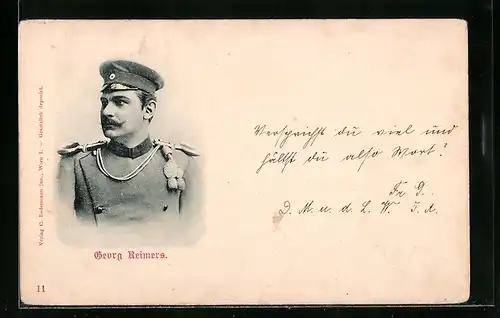 Verlag C. Ledermann jun., Wien I. – Gesetzlich deponirt.
Georg Reimers.
11
Versprichst du viel und
hältst du also Wort?
D. M. u. d. L. W. T. d.